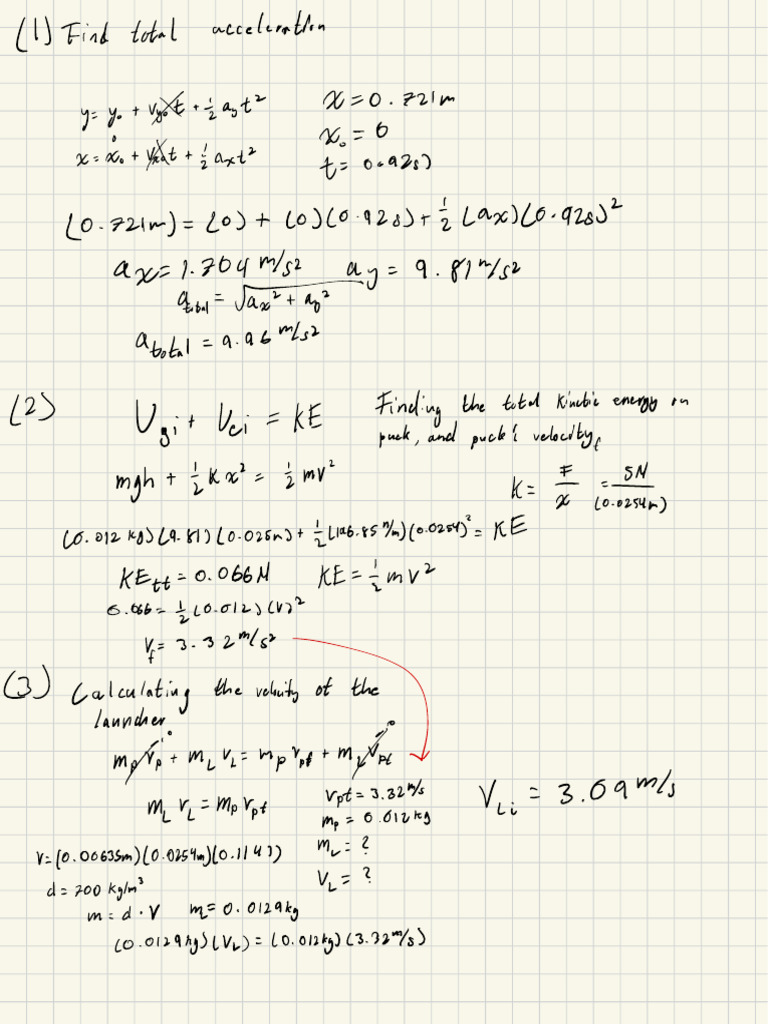 (1) Find total acceleration
y = y₀ + v_y₀t + ½ a_y t²
x = 0.721m
x₀ = 0
x = x₀ + v_x₀t + ½ a_x t²
0
t = 0.92s)
(0.721m) = (0) + (0)(0.92s) + ½ (ax)(0.92s)²
ax = 1.704 m/s² ay = 9.81 m/s²
a_total = √(ax² + ay²)
a_total = 9.96 m/s²
(2) U_gi + U_ei = KE
Finding the total kinetic energy on
puck, and puck's velocity_f
mgh + ½ Kx² = ½ mv²
k = F/x = 5N/(0.0254m)
(0.012 kg)(9.81)(0.025m) + ½(196.85 N/m)(0.0254)² = KE
KE_tt = 0.066N KE = ½ mv²
0.066 = ½ (0.012)(V)²
V_f = 3.32 m/s²
(3) Calculating the velocity of the
launcher
m_p v_p + m_L v_L = m_p v_pf + m_L v_pf
0 0
m_L v_L = m_p v_pf
v_pf = 3.32 m/s
m_p = 0.012kg
m_L = ?
V_L = ?
V_Li = 3.09 m/s
V = (0.00635m)(0.0254m)(0.1143)
d = 700 kg/m³
m = d · V m = 0.0129kg
(0.0129kg)(V_L) = (0.012kg)(3.32 m/s)